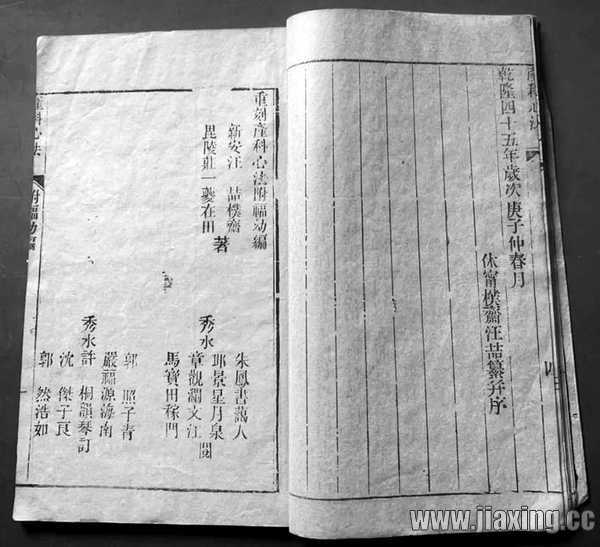 產科心法
乾隆四十五年歲次庚子仲春月
休甯樸齋汪喆纂并序
四
重刻產科心法附福幼編
新安汪 喆樸齋
毘陵莊一夔在田
著
朱鳳書藹人
景星月泉
秀水
章觀瀾文江
閱
馬寶田稼門
郭 照子青
嚴福源海南
秀水許 桐韻琴訂
沈 傑子良
郭 然浩如
產科心法
附福幼編
www.jiaxing.cc